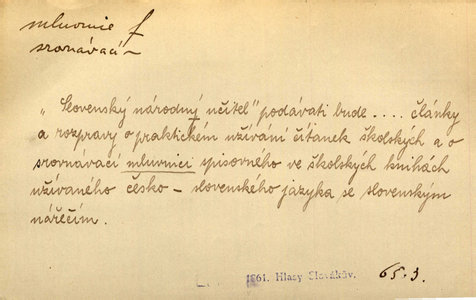 mluvnice f
srovnávací
„Slovenský národný učitel" podávati bude .... články
a rozpravy o praktickém užívání čítanek školských a o
srovnávací mluvnici spisovného ve školských knihách
užívaného česko-slovenského jazyka se slovenským
nářečím.
1861. Hlasy Slovákův. 65.3.